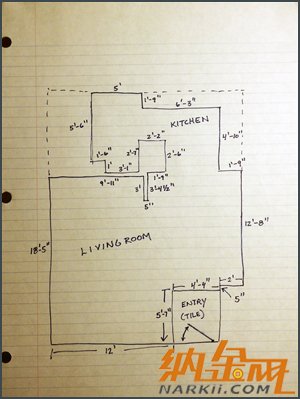 5'
1'-9"
6'-3"
KITCHEN
5'-6"
2'-2"
4'-10"
1'-6"
1'
2'-7"
2'-6"
3'-1"
1'-9"
1'-9"
9'-11"
3'
3'-4½"
5"
12'-8"
18'-5"
LIVING ROOM
4'-4"
2'
5"
ENTRY
(TILE)
5'-7"
12'
纳金网
NARKII.COM